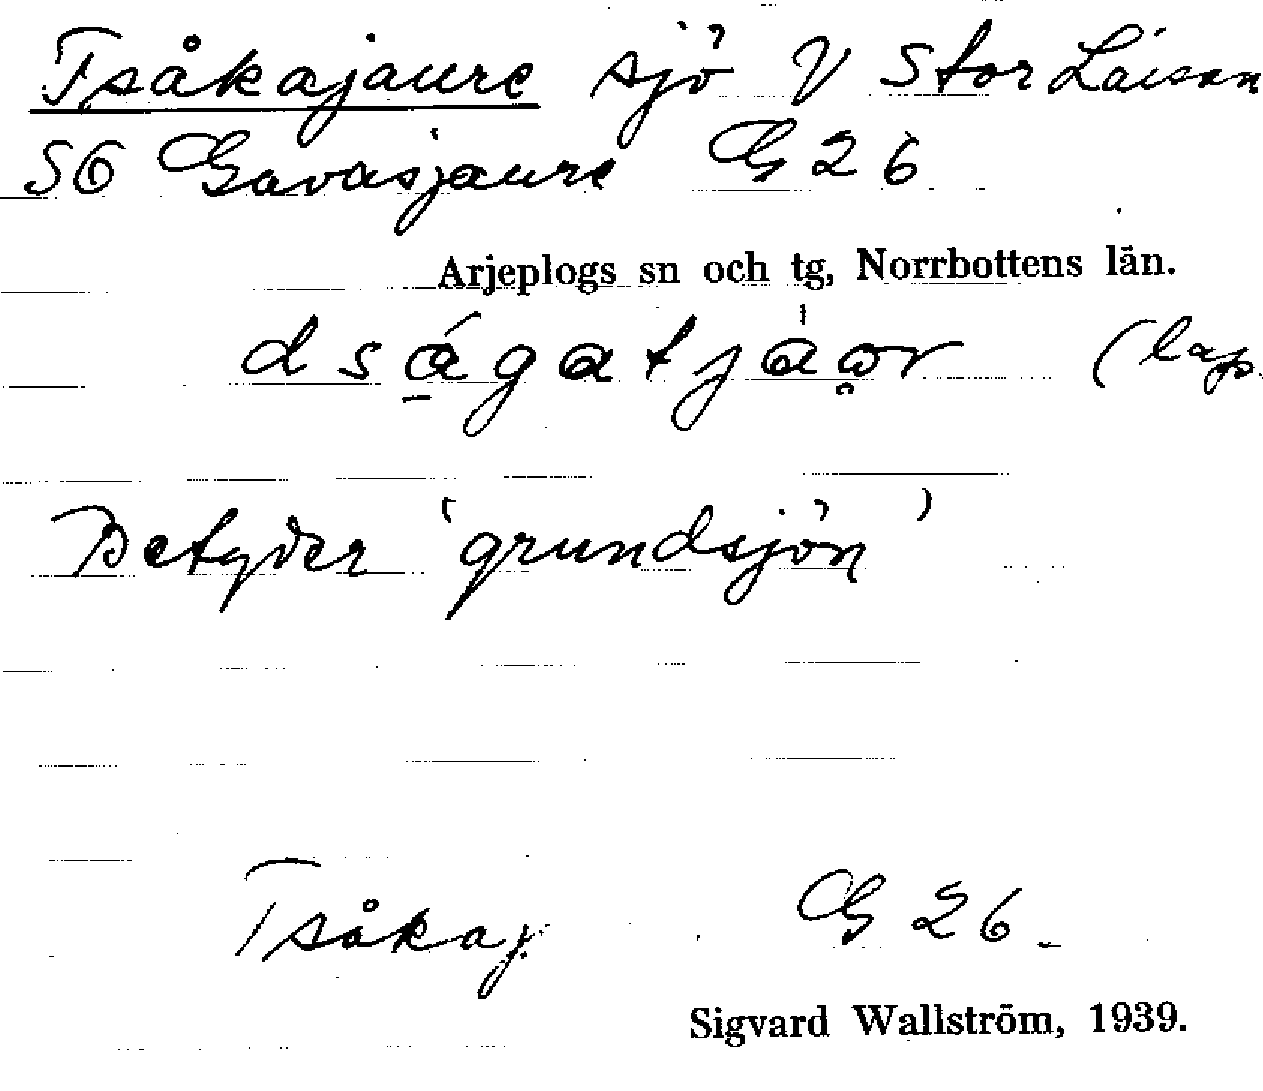 Tsåkajaure sjö V Stor Laisan
SO Gavasjaure G 26
Arjeplogs sn och tg, Norrbottens län.
dsá̱gatjȧǫr (lap.
Betyder 'grundsjön'
Tsåkaj. G 26.
Sigvard Wallström, 1939.